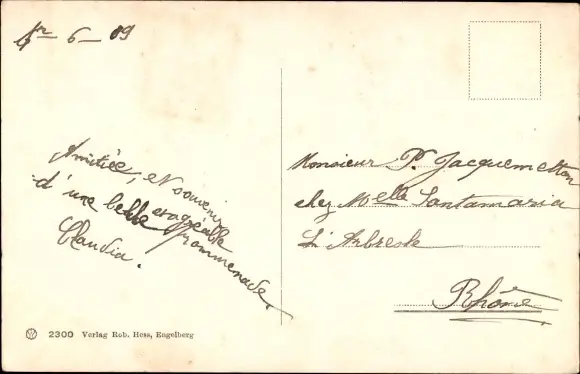 1er 6 - 09
Amitiée, et souvenir
d'une belle
promenade.
Claudia.
Monsieur P. Jacquemetton
chez Melle Santamaria
L'Arbresle
Rhône
2300 Verlag Rob. Hess, Engelberg